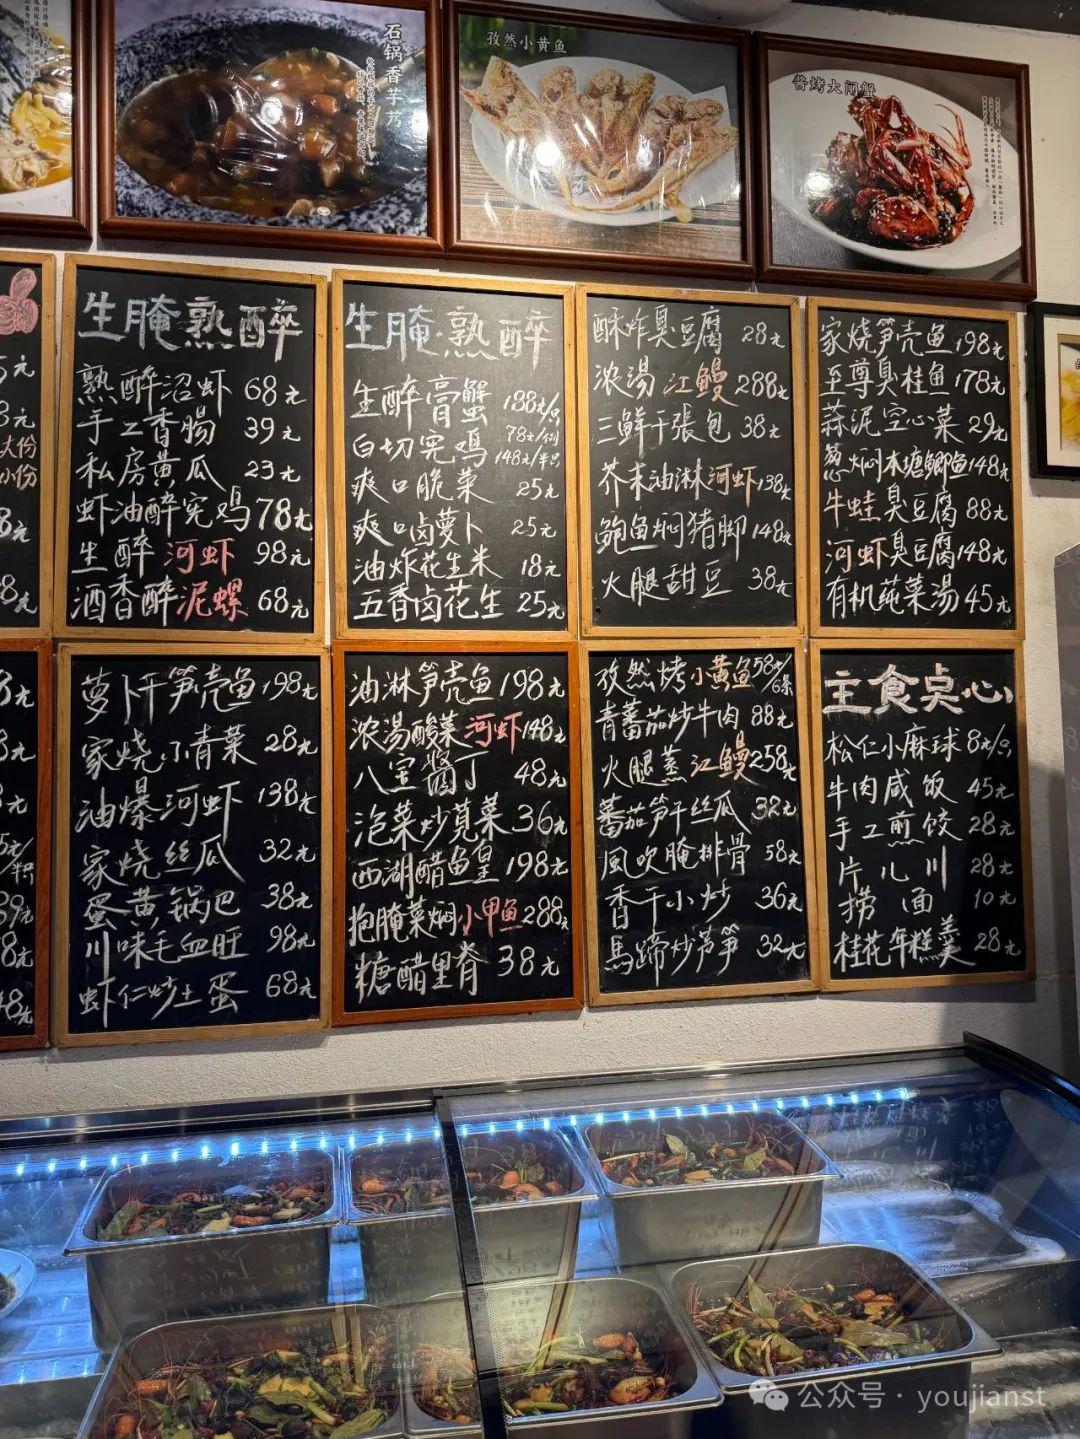 石锅香芋艿
孜然小黄鱼
酱烤大闸蟹
生腌熟醉
熟醉沼虾 68元
手工香肠 39元
私房黄瓜 23元
虾油醉宪鸡 78元
生醉河虾 98元
酒香醉泥螺 68元
生腌·熟醉
生醉膏蟹 188元/只
白切宪鸡 78元/例
148元/半只
爽口脆菜 25元
爽口卤萝卜 25元
油炸花生米 18元
五香卤花生 25元
酥炸臭豆腐 28元
浓湯江鳗 288元
三鲜干張包 38元
芥末油淋河虾 138元
鲍鱼焖猪脚 148元
火腿甜豆 38元
家烧笋壳鱼 198元
至尊臭桂鱼 178元
蒜泥空心菜 29元
葱焖本塘鲫鱼 148元
牛蛙臭豆腐 88元
河虾臭豆腐 148元
有机莼菜湯 45元
大份
小份
萝卜干笋壳鱼 198元
家烧小青菜 28元
油爆河虾 138元
家烧丝瓜 32元
蛋黄锅巴 38元
川味毛血旺 98元
虾仁炒土蛋 68元
油淋笋壳鱼 198元
浓湯酸菜河虾 148元
八宝酱丁 48元
泡菜炒莧菜 36元
西湖醋鱼皇 198元
抱腌菜焖小甲鱼 288元
糖醋里脊 38元
孜然烤小黄鱼 58元/6条
青蕃茄炒牛肉 88元
火腿蒸江鳗 258元
蕃茄笋干丝瓜 32元
風吹腌排骨 58元
香干小炒 36元
馬蹄炒芦笋 32元
主食点心
松仁小麻球 8元/只
牛肉咸饭 45元
手工煎饺 28元
片儿川 28元
捞面 10元
桂花年糕羹 28元
公众号 · youjianst